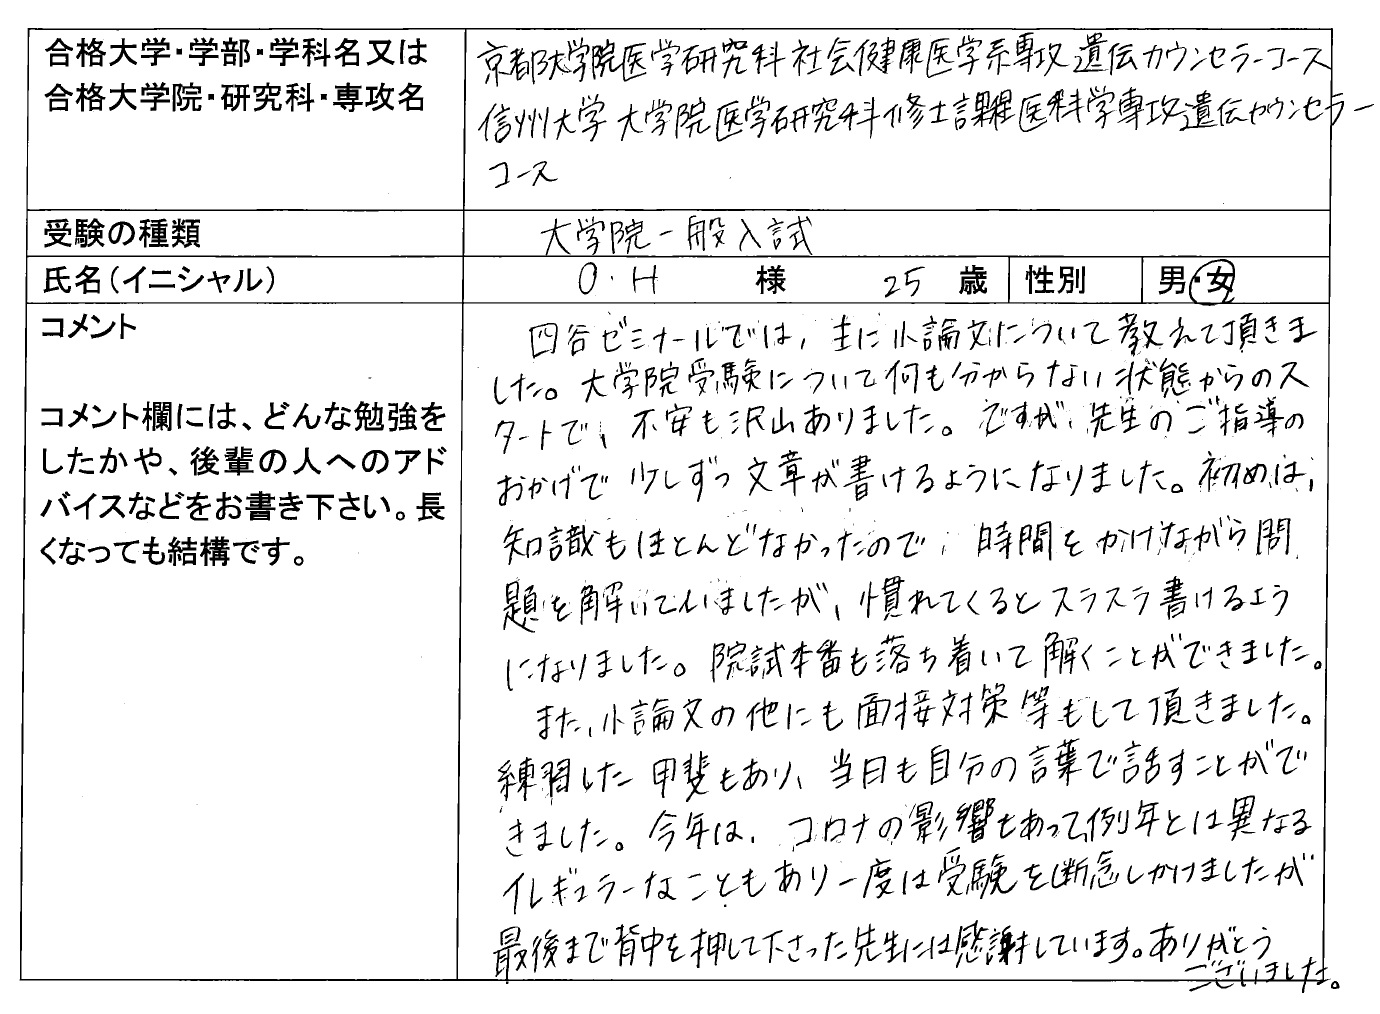 合格大学・学部・学科名又は
合格大学院・研究科・専攻名
京都大学院医学研究科社会健康医学系専攻遺伝カウンセラーコース
信州大学大学院医学研究科修士課程医科学専攻遺伝カウンセラー
コース
受験の種類
大学院一般入試
氏名（イニシャル）
O.H 様 25 歳 性別 男・女
コメント
コメント欄には、どんな勉強を
したかや、後輩の人へのアド
バイスなどをお書き下さい。長
くなっても結構です。
四谷ゼミナールでは、主に小論文について教えて頂きま
した。大学院受験について何も分からない状態からのス
タートで、不安も沢山ありました。ですが、先生のご指導の
おかげで少しずつ文章が書けるようになりました。初めは、
知識もほとんどなかったので、時間をかけながら問
題を解いていましたが、慣れてくるとスラスラ書けるよう
になりました。院試本番も落ち着いて解くことができました。
また、小論文の他にも面接対策等もして頂きました。
練習した甲斐もあり、当日も自分の言葉で話すことがで
きました。今年は、コロナの影響もあって、例年とは異なる
イレギュラーなこともあり一度は受験を断念しかけましたが
最後まで背中を押して下さった先生には感謝しています。ありがとう
ございました。